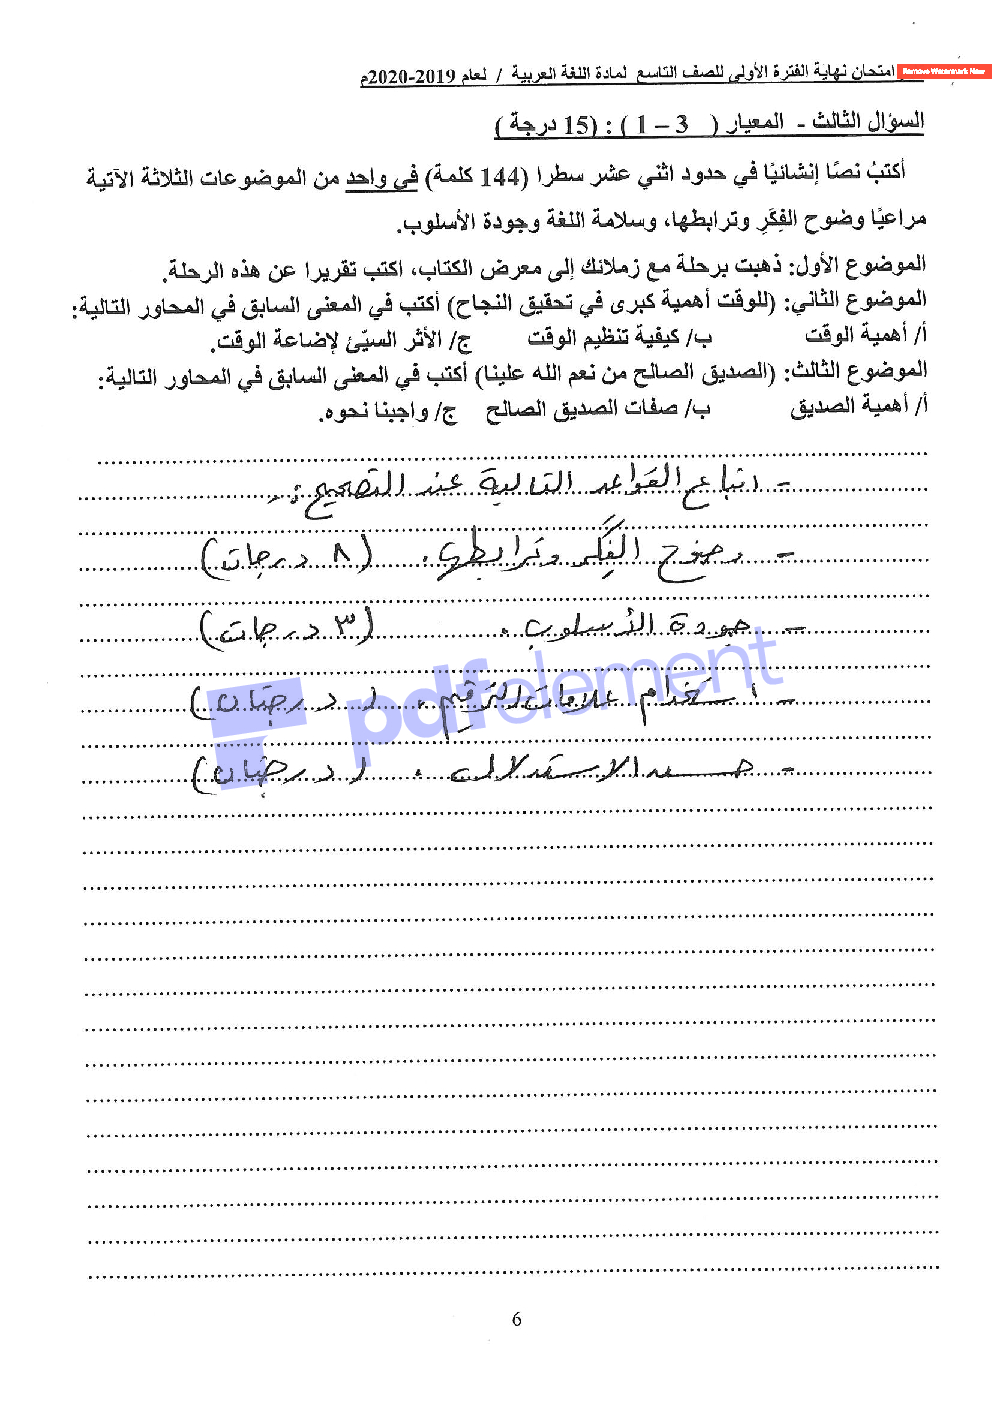 امتحان نهاية الفترة الأولى للصف التاسع لمادة اللغة العربية / لعام 2019-2020م
Remove Watermark Now
السؤال الثالث - المعيار ( 3 – 1 ) : (15 درجة )
أكتبُ نصًا إنشائيًا في حدود اثني عشر سطرا (144 كلمة) في واحد من الموضوعات الثلاثة الآتية
مراعيًا وضوح الفِكَرِ وترابطها، وسلامة اللغة وجودة الأسلوب.
الموضوع الأول: ذهبت برحلة مع زملائك إلى معرض الكتاب، اكتب تقريرا عن هذه الرحلة.
الموضوع الثاني: (للوقت أهمية كبرى في تحقيق النجاح) أكتب في المعنى السابق في المحاور التالية:
أ/ أهمية الوقت ب/ كيفية تنظيم الوقت ج/ الأثر السيّئ لإضاعة الوقت.
الموضوع الثالث: (الصديق الصالح من نعم الله علينا) أكتب في المعنى السابق في المحاور التالية:
أ/ أهمية الصديق ب/ صفات الصديق الصالح ج/ واجبنا نحوه.
- اتباع القواعد التالية عند التصحيح :-
- وضوح الفِكَر وترابطها . (٨ درجات)
- جودة الأسلوب . (٣ درجات)
- استخدام علامات الترقيم . (درجتان)
- الاستدلال . (درجتان)
pdfelement
6